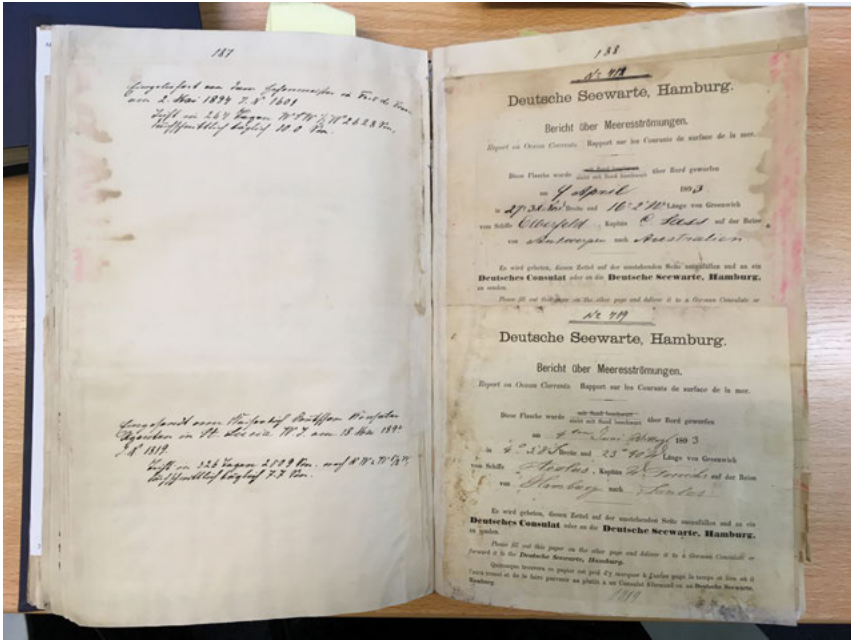 187
Eingeliefert von dem Hafenmeister in Fort de
am 2. Mai 1894 J. N° 1601
Trift in 267 Tagen W 2628 Sm.
durchschnittlich täglich 10.0 Sm.
Eingesandt vom Kaiserlich Deutschen Konsular
Agenten in St. Lucia W. I. am 18 Mai 189
J. N° 1819.
Trift in 326 Tagen 2509 Sm. nach
durchschnittlich täglich 7.7 Sm.
188
No 418
Deutsche Seewarte, Hamburg.
Bericht über Meeresströmungen.
Report on Ocean Currents. Rapport sur les Courants de surface de la mer.
Diese Flasche wurde mit Sand beschwert
nicht mit Sand beschwert über Bord geworfen
am 9 April 1893
in 27° 38' Breite und 16° 2' W Länge von Greenwich
vom Schiffe Elberfeld, Kapitän C Sass auf der Reise
von Antwerpen nach Australien
Es wird gebeten, diesen Zettel auf der umstehenden Seite auszufüllen und an ein
Deutsches Consulat oder an die Deutsche Seewarte, Hamburg,
zu senden.
Please fill out this paper on the other page and deliver it to a German Consulate or
No 419
Deutsche Seewarte, Hamburg.
Bericht über Meeresströmungen.
Report on Ocean Currents. Rapport sur les Courants de surface de la mer.
Diese Flasche wurde mit Sand beschwert
nicht mit Sand beschwert über Bord geworfen
am 1893
in 4° 28' Breite und 23° 40' W Länge von Greenwich
vom Schiffe, Kapitän auf der Reise
von Hamburg nach Santos
Es wird gebeten, diesen Zettel auf der umstehenden Seite auszufüllen und an ein
Deutsches Consulat oder an die Deutsche Seewarte, Hamburg,
zu senden.
Please fill out this paper on the other page and deliver it to a German Consulate or
forward it to the Deutsche Seewarte, Hamburg.
Quiconque trouvera ce papier est prié d'y marquer à l'autre page le temps et lieu où il
l'aura trouvé et de le faire parvenir au plutôt à un Consulat Allemand ou au Deutsche Seewarte,
Hamburg.
1819